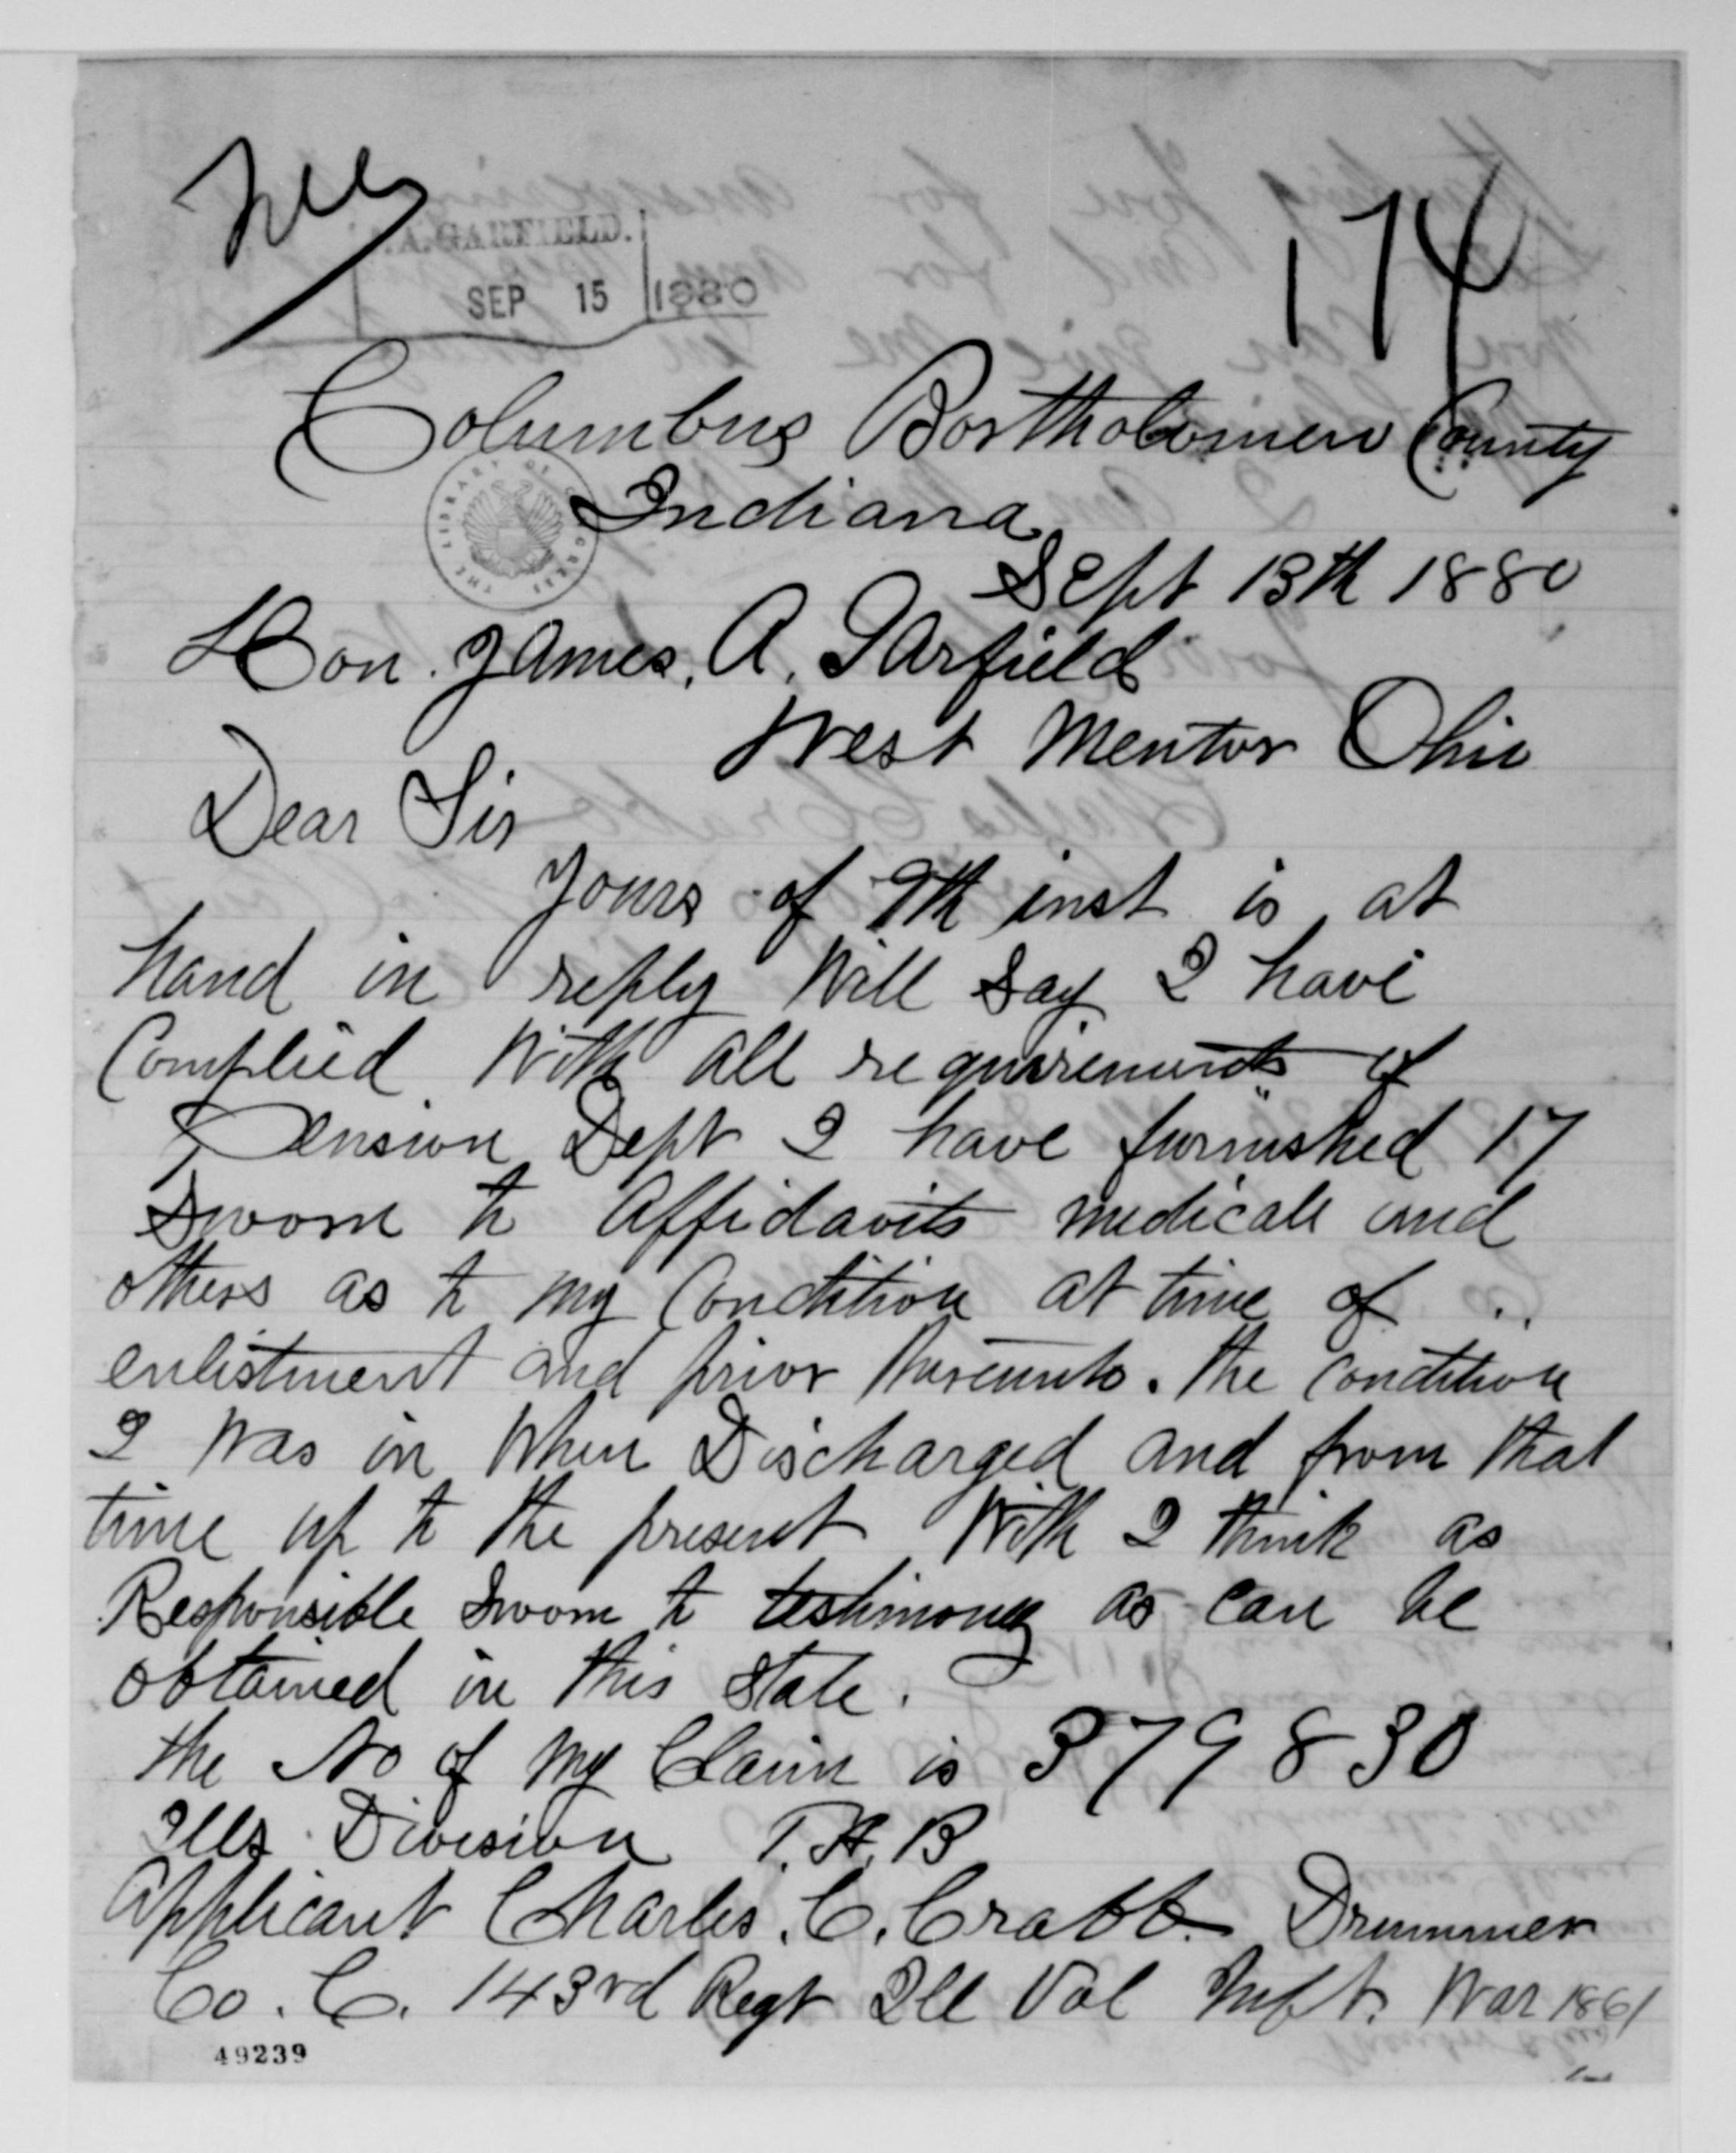 174
J.A.GARFIELD.
SEP 15 1880
Columbus Bartholomew County
THE LIBRARY OF CONGRESS
Indiana
Sept 13th 1880
Hon. James. A. Garfield
West Mentor Ohio
Dear Sir
Yours of 9th inst is at
hand in reply Will Say I have
Complied With all requirements of
Pension Dept I have furnished 17
Sworn to Affidavits medicale and
others as to my Condition at time of
enlistment and prior thereunto. the Condition
I Was in When Discharged and from that
time up to the present With I think as
Responsible Sworn to testimony as can be
obtained in this State.
the No of my Claim is 379830
Ills Division T. H. B
Applicant Charles. C. Crabb. Drummer
Co. C. 143rd Regt Ill Vol Inft. War 1861
49239